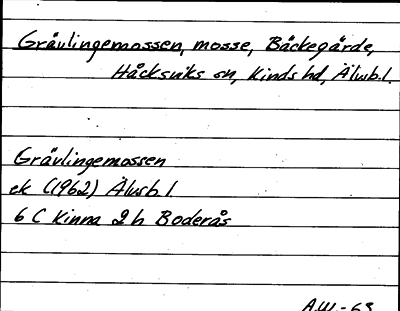 Grävlingemossen, mosse, Bäckegärde,
Håcksviks sn, Kinds hd, Älvsb. l.
Grävlingemossen
ek (1962) Älvsb. l.
6 C Kinna 2 h Boderås
A.W.-63